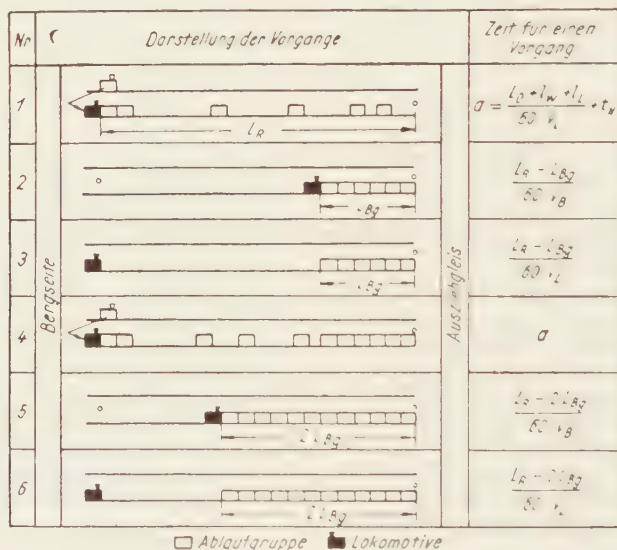 Nr
Darstellung der Vorgänge
Zeit für einen Vorgang
Bergseite
Ausziehgleis
1
l_R
a = (l_0 + l_w + l_L) / 60 v_L + t_w
2
L_Bg
(L_R - L_Bg) / 60 v_B
3
L_Bg
(L_R - L_Bg) / 60 v_L
4
a
5
2 L_Bg
(L_R - 2 L_Bg) / 60 v_B
6
2 L_Bg
(L_R - 2 L_Bg) / 60 v_L
Ablaufgruppe Lokomotive